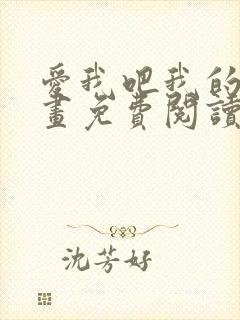 愛我吧我的
畫免費閱讀
沈芳好